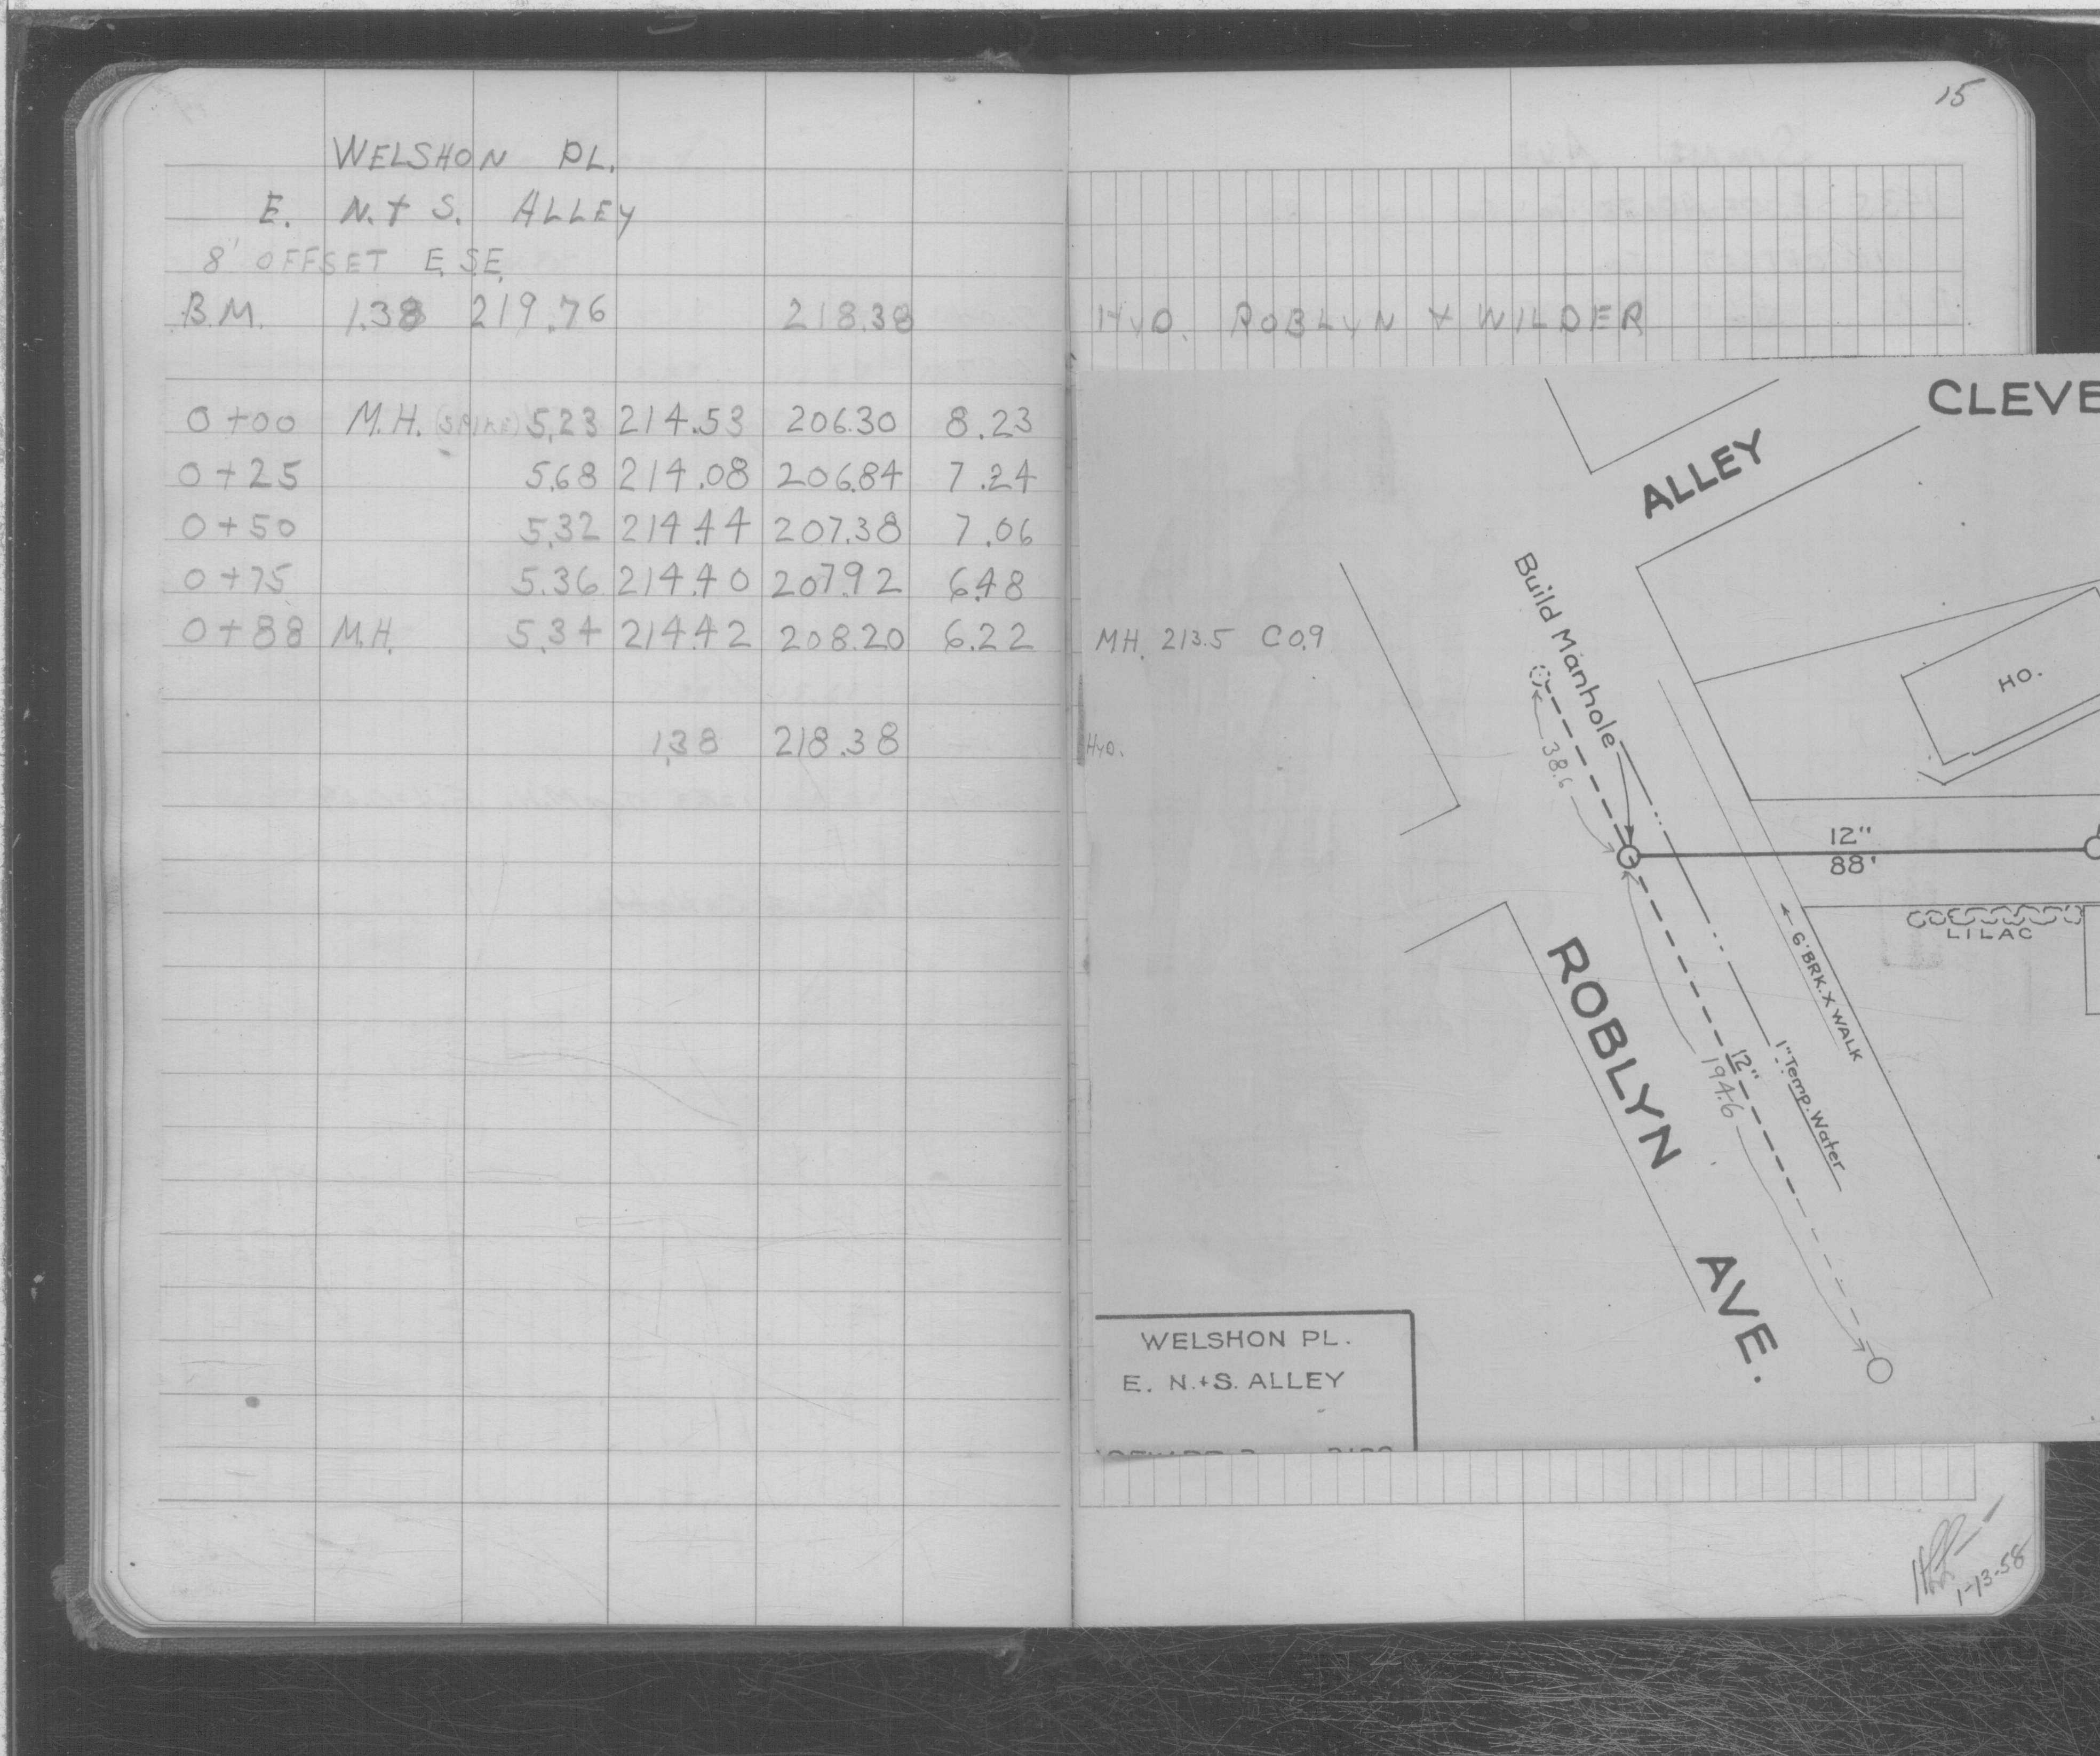 WELSHON PL.
E. N. + S. ALLEY
8' OFFSET E, S.E.
B.M. 1.38 219.76 218.38
0+00 M.H. (SPIKE) 5.23 214.53 206.30 8.23
0+25 5.68 214.08 206.84 7.24
0+50 5.32 214.44 207.38 7.06
0+75 5.36 214.40 207.92 6.48
0+88 M.H. 5.34 214.42 208.20 6.22
1.38 218.38
15
HYD. ROBLYN + WILDER
MH. 213.5 C0.9
HYD.
CLEVE
ALLEY
Build Manhole
HO.
38.6
12"
88'
LILAC
6' BRK. X WALK
ROBLYN AVE.
12"
194.6
1" Temp. Water
WELSHON PL.
E. N.+S. ALLEY
1-13-58